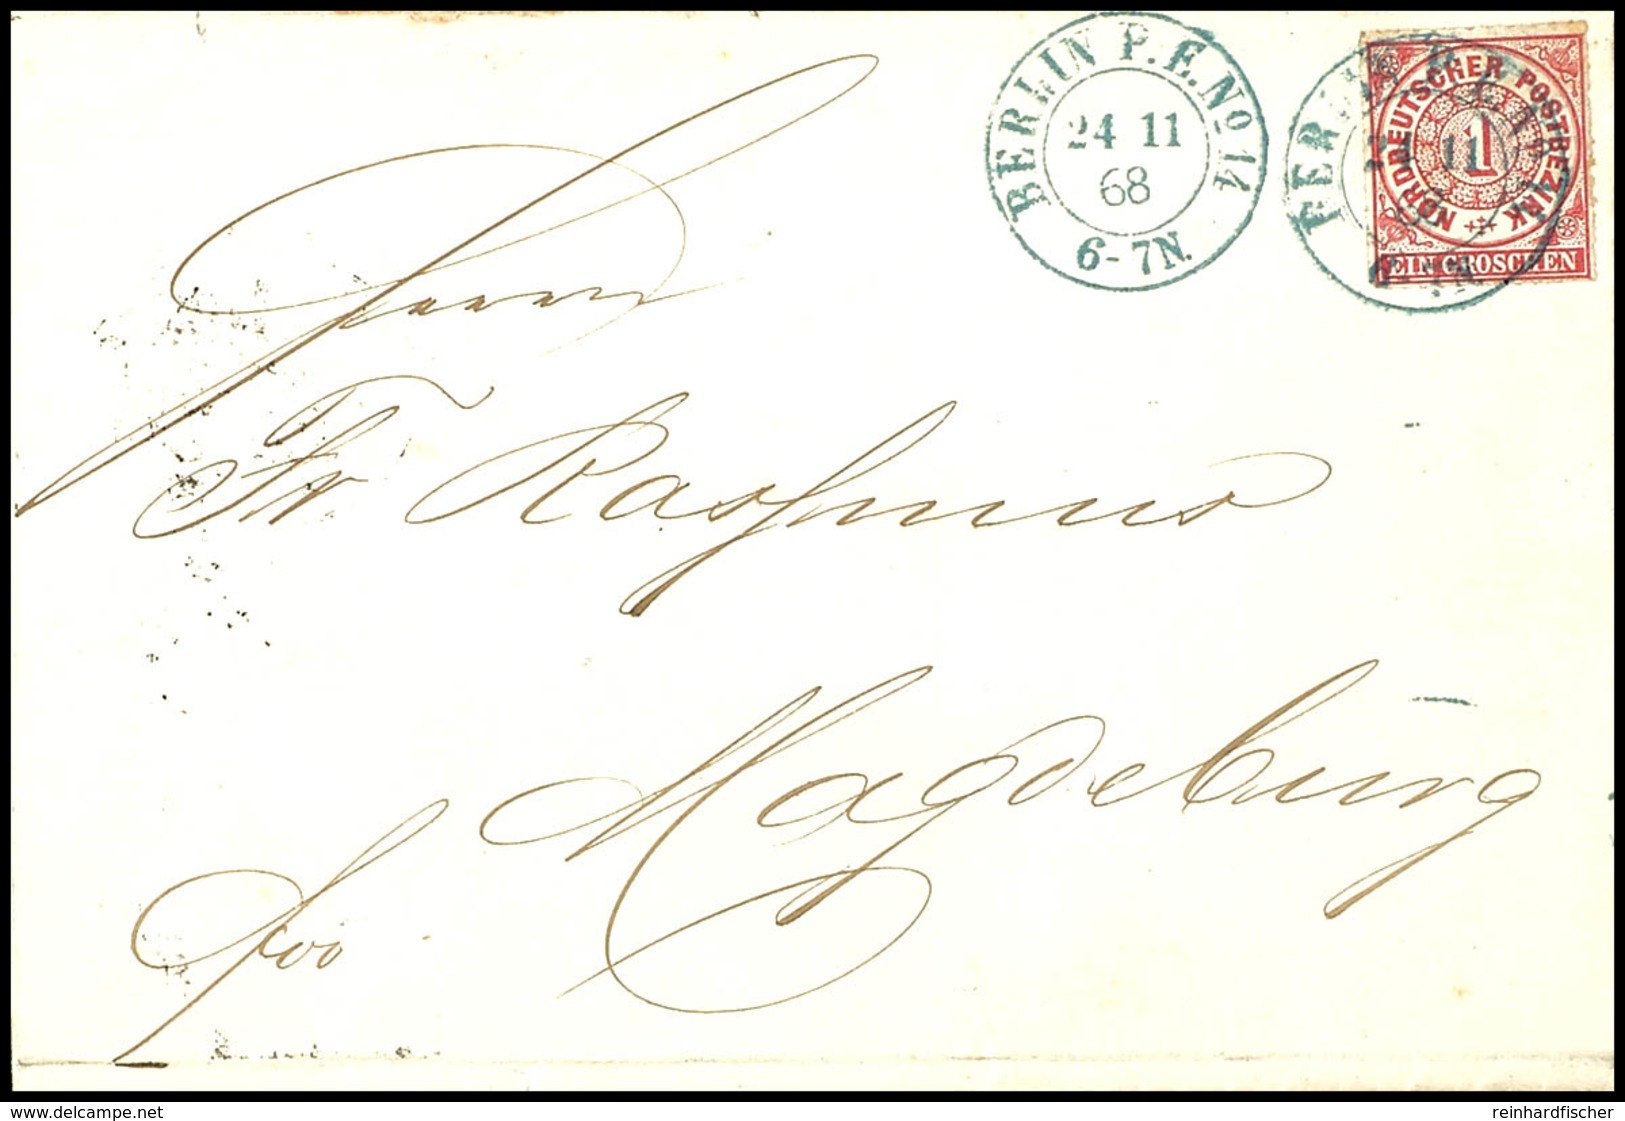 BERLIN P.E. No 14
24 11
68
6-7N.
NORDDEUTSCHER POSTBEZIRK
1
EIN GROSCHEN
Herrn
Fr Rassmus
Magdeburg
fro
www.delcampe.net
reinhardfischer